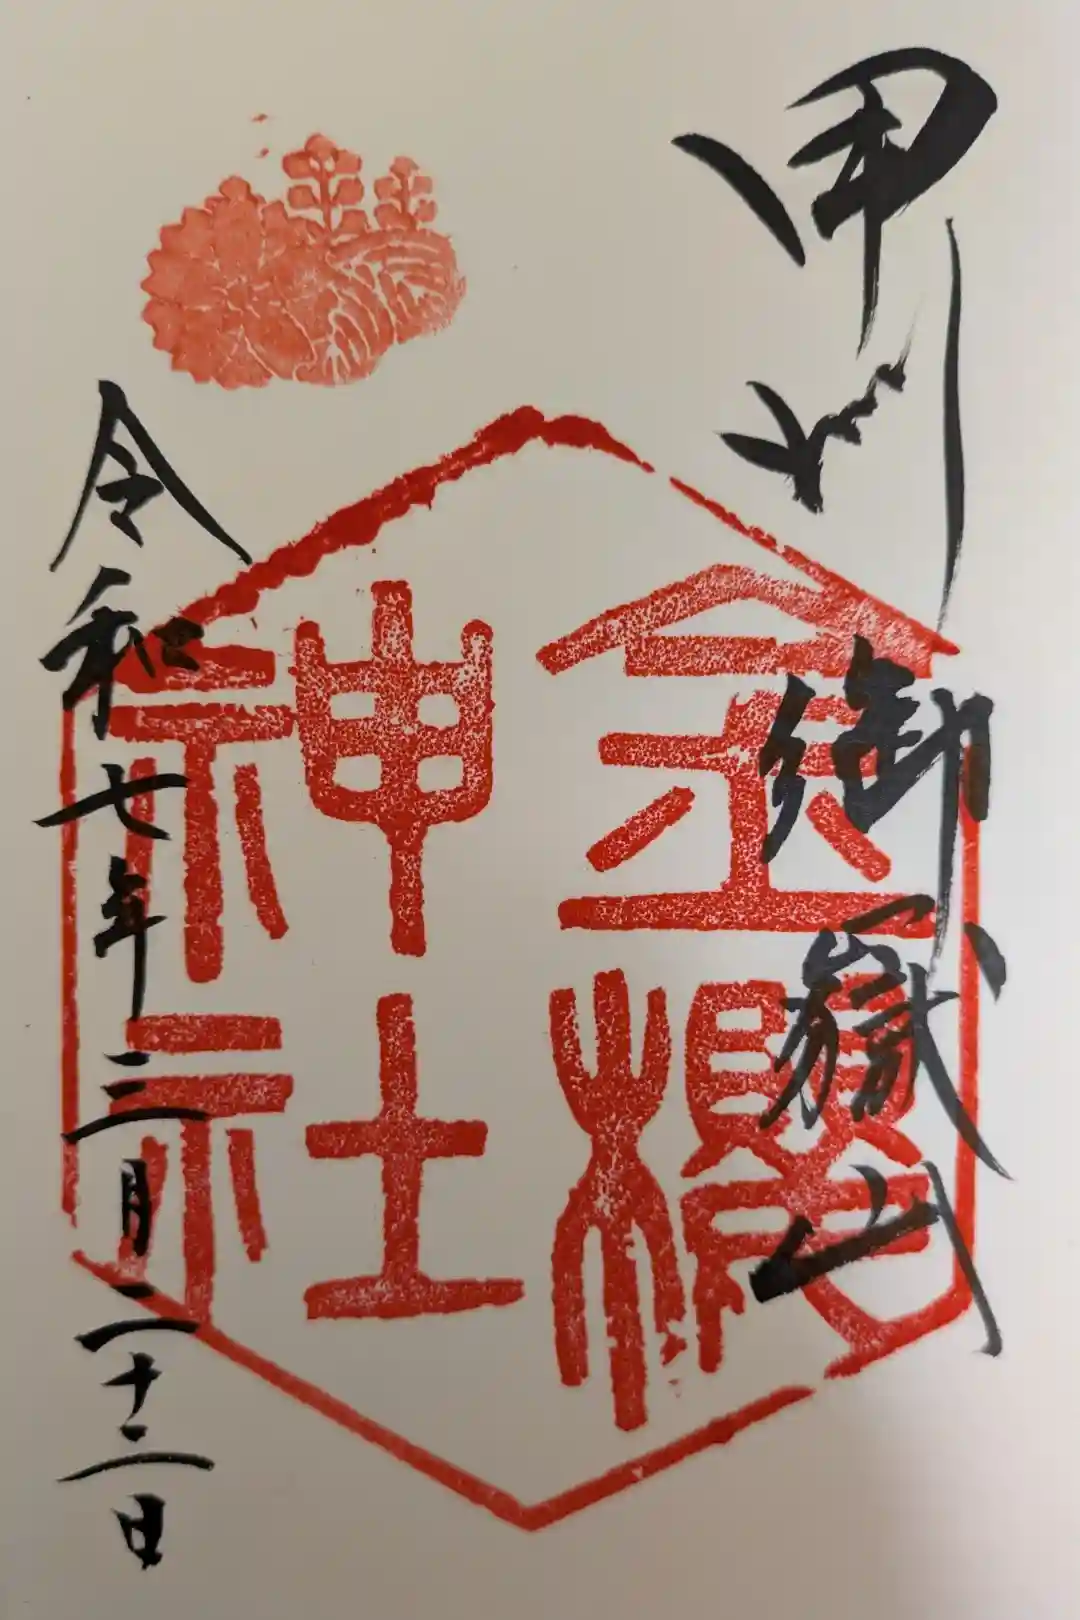 甲州
御嶽山
金櫻
神社
令和七年三月二十二日